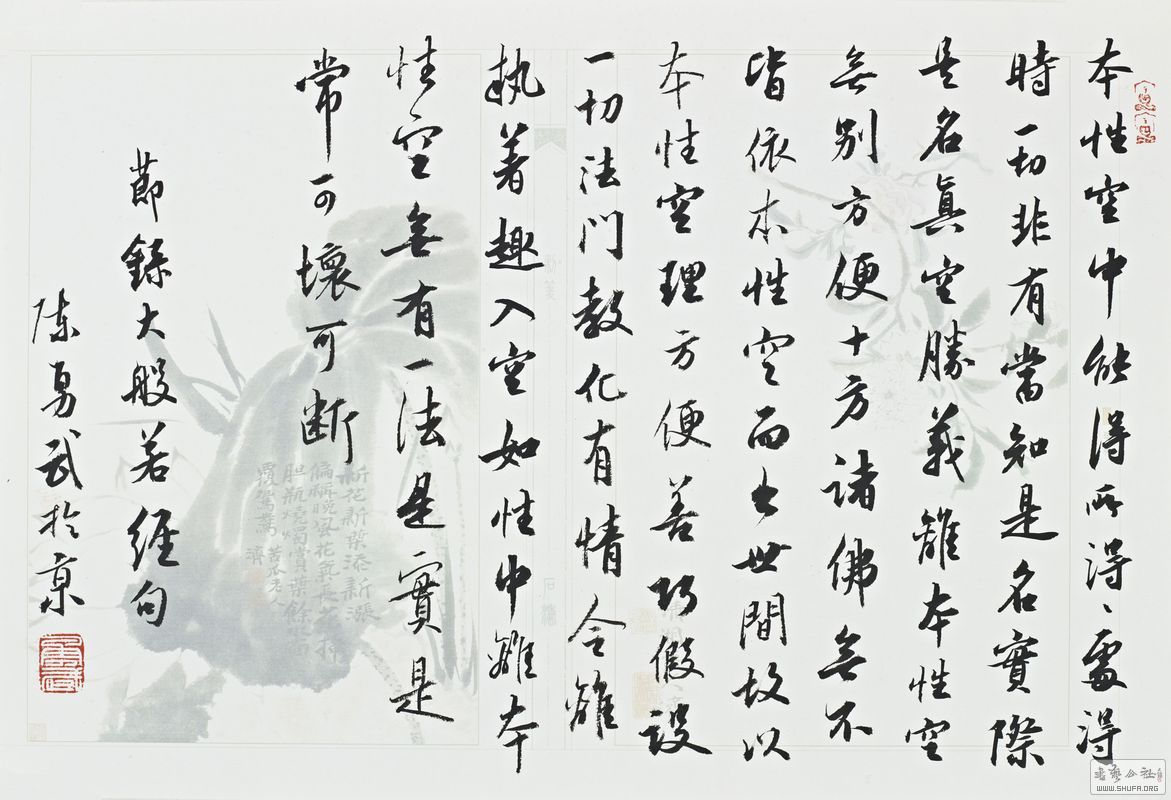 本性空中能得所得、處得
時一切非有當知是名實際
是名眞空勝義離本性空
無別方便十方諸佛無不
皆依本性空而出世間故以
本性空理方便善巧假設
一切法門教化有情令離
執著趣入空如性中離本
性空無有一法是實是
常可壞可斷
節錄大般若經句
陳勇武於京
新花新葉添新漲
覆鴛鴦
濟
書藝公社
WWW.SHUFA.ORG